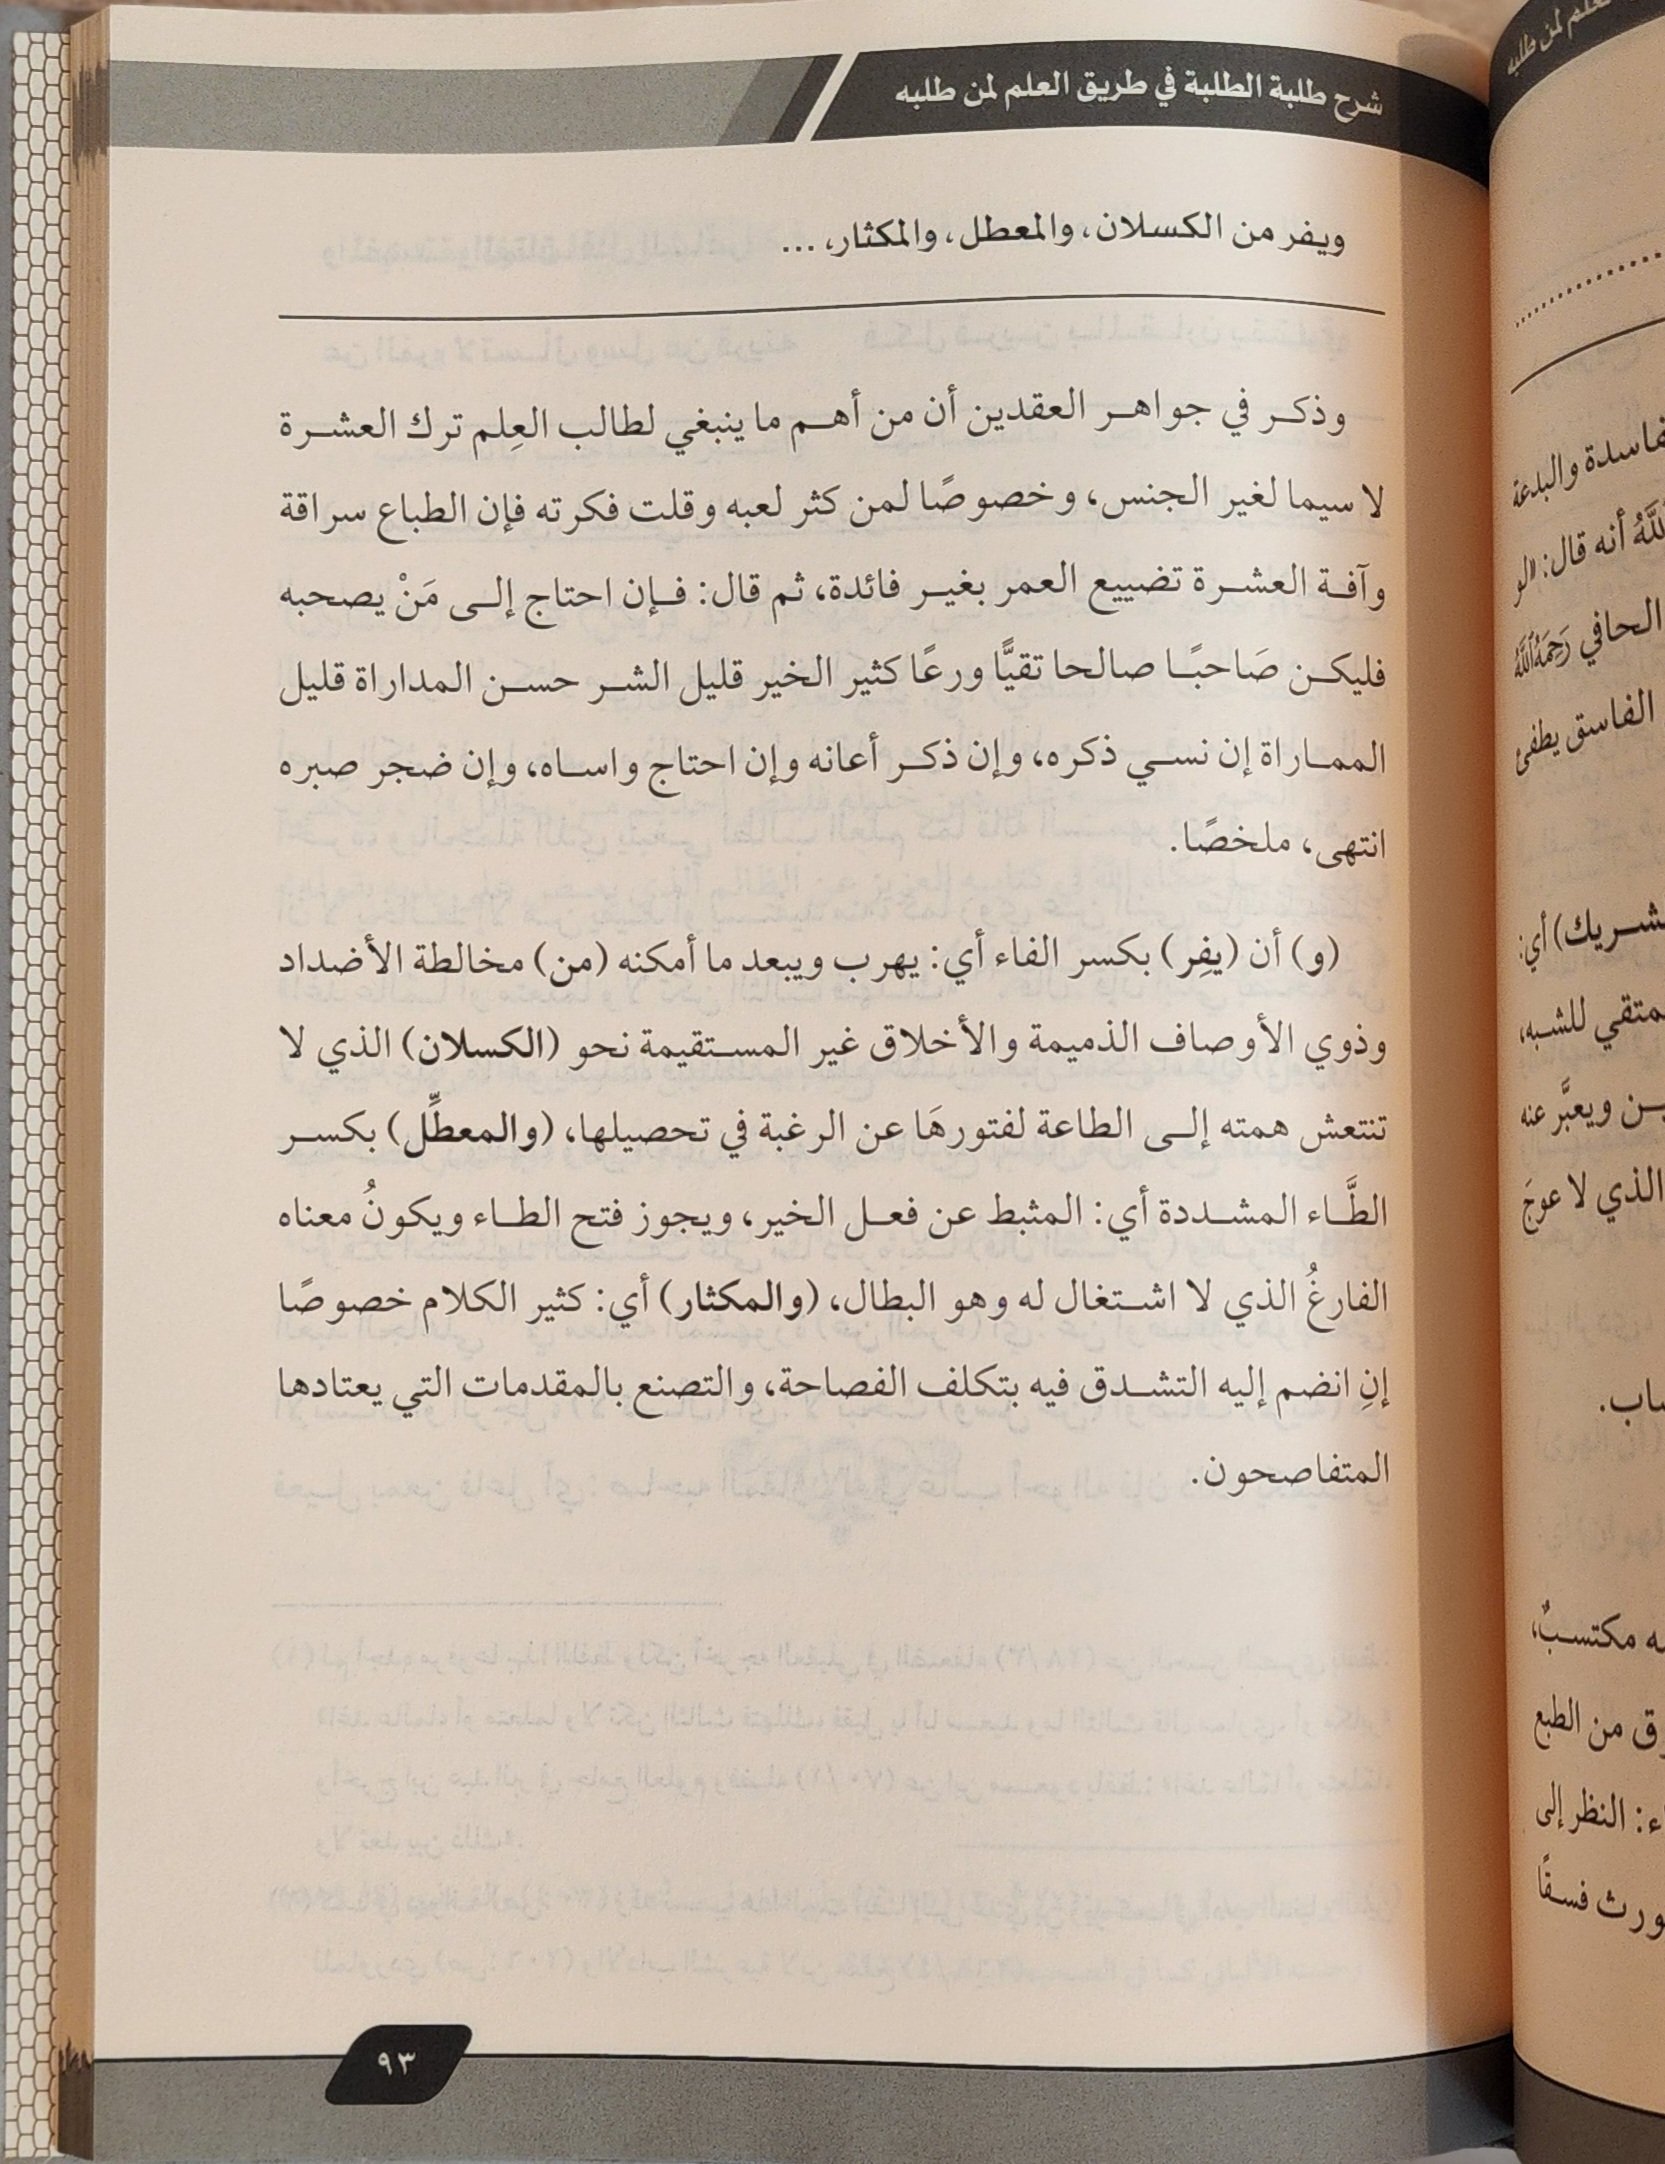 شرح طلبة الطلبة في طريق العلم لمن طلبه
ويفر من الكسلان، والمعطل، والمكثار، ...
وذكر في جواهر العقدين أن من أهم ما ينبغي لطالب العِلم ترك العشرة
لا سيما لغير الجنس، وخصوصًا لمن كثر لعبه وقلت فكرته فإن الطباع سراقة
وآفة العشرة تضييع العمر بغير فائدة، ثم قال: فإن احتاج إلى مَنْ يصحبه
فليكن صَاحبًا صالحا تقيًّا ورعًا كثير الخير قليل الشر حسن المداراة قليل
المماراة إن نسي ذكره، وإن ذكر أعانه وإن احتاج واساه، وإن ضجر صبره
انتهى، ملخصًا.
(و) أن (يفِر) بكسر الفاء أي: يهرب ويبعد ما أمكنه (من) مخالطة الأضداد
وذوي الأوصاف الذميمة والأخلاق غير المستقيمة نحو (الكسلان) الذي لا
تنتعش همته إلى الطاعة لفتورهَا عن الرغبة في تحصيلها، (والمعطِّل) بكسر
الطَّاء المشددة أي: المثبط عن فعل الخير، ويجوز فتح الطاء ويكونُ معناه
الفارغُ الذي لا اشتغال له وهو البطال، (والمكثار) أي: كثير الكلام خصوصًا
إنِ انضم إليه التشدق فيه بتكلف الفصاحة، والتصنع بالمقدمات التي يعتادها
المتفاصحون.
٩٣
والبدعة
أنه قال: «لو
الحافي رَحِمَهُ اللَّهُ
الفاسق يطفئ
أي:
للشبه،
ويعبَّر عنه
الذي لا عوجَ
مكتسبٌ،
من الطبع
النظر إلى
فسقًا